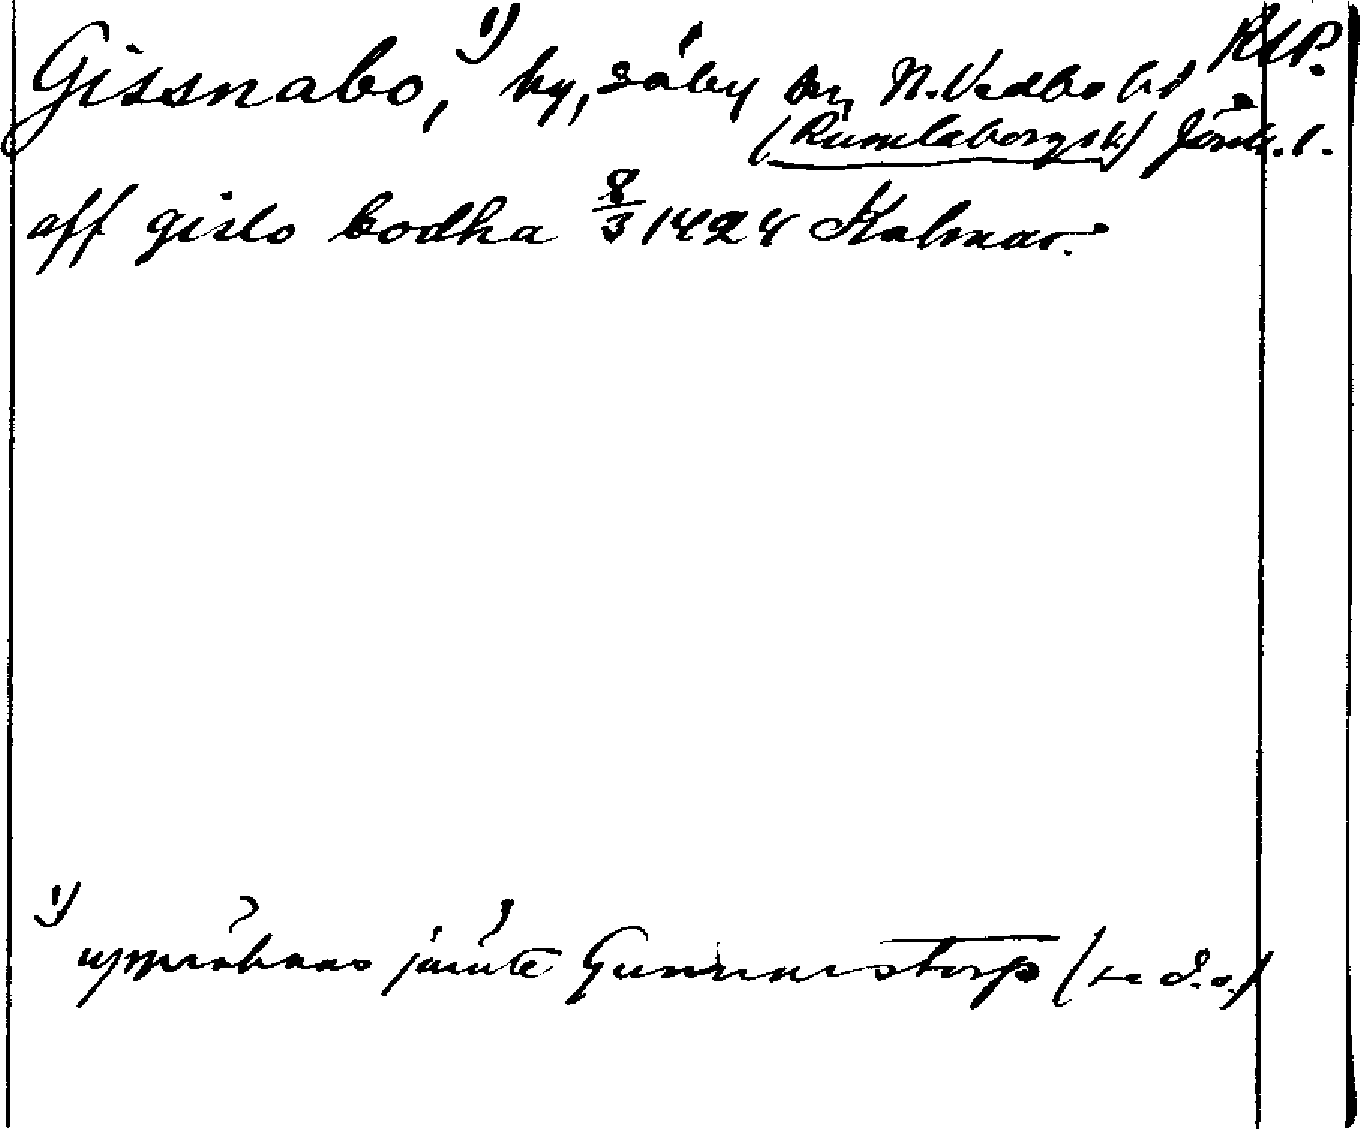 Gissnabo,¹⁾ by, Säby sn, N. Vedbo hd RAP.
(Rumlaborgs l.) Jönk. l.
aff gislo bodha 8/3 1424 Kalmar.
¹⁾ uppräknas jämte Gunnarstorp (se d. o.)